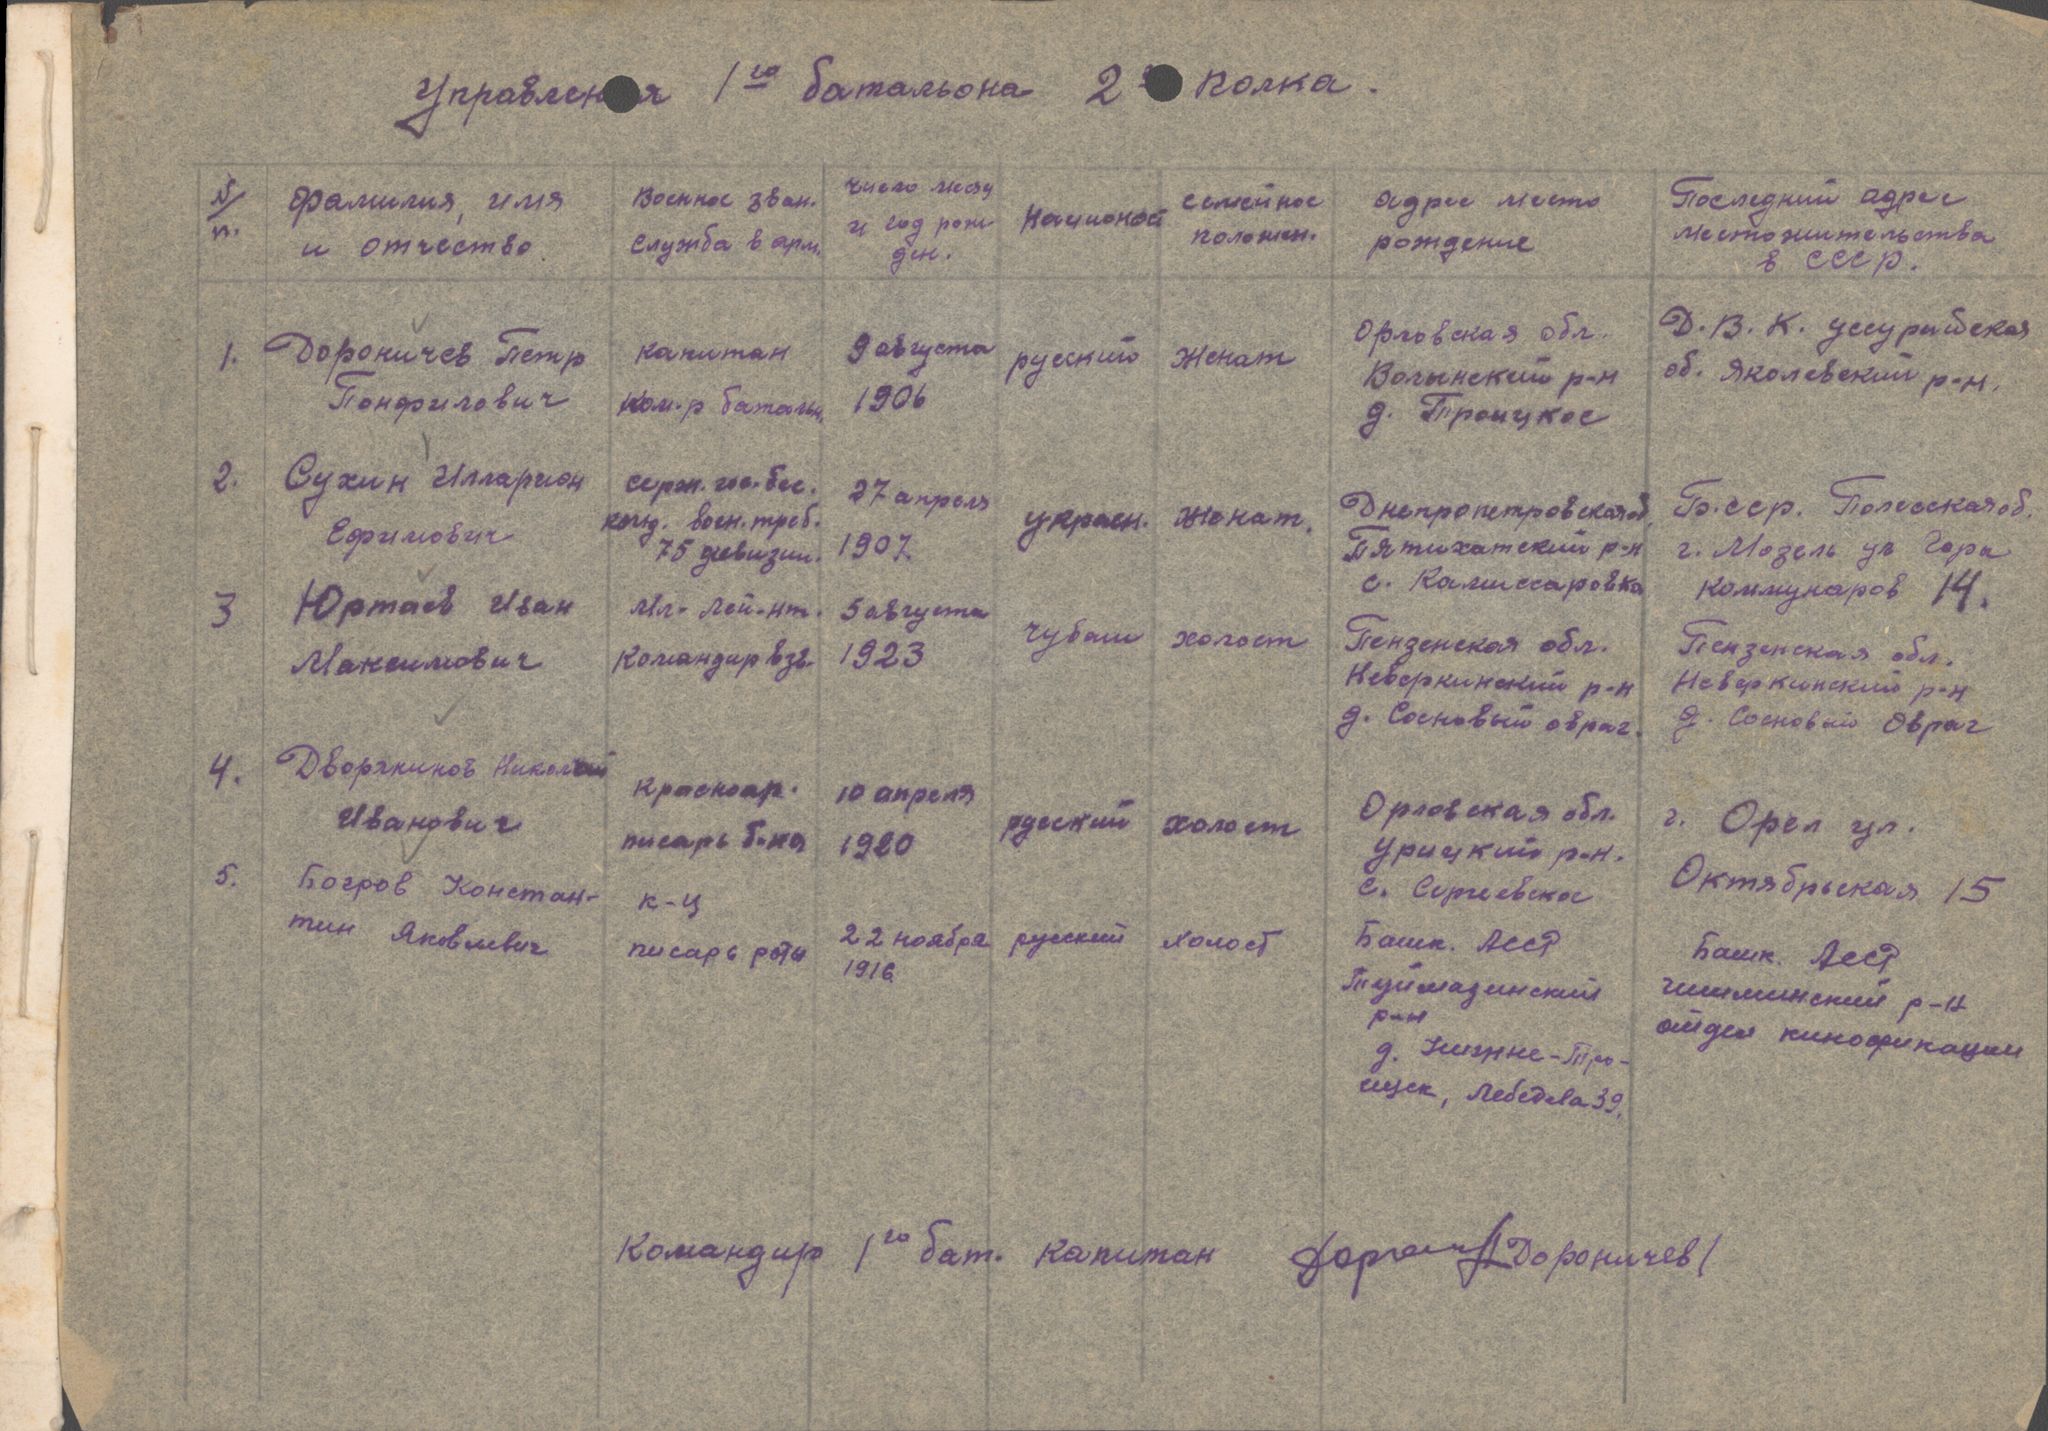 Управления 1го батальона 2го полка.
№/п. Фамилия, имя и отчество
Военное зван. служба в арм.
Число месяц и год рожден.
Национал
Семейное положен.
Адрес место рождение
Последний адрес местожительства в СССР.
1. Дороничев Петр Понфилович
капитан
ком-р батальн.
9 августа
1906
русский
женат
Орловская обл.
Волынский р-н
д. Троицкое
Д.В.К. уссурийская
об. Яколевский р-н.
2. Сухин Илларион
Ефимович
серж. гос. без.
комд. воен. треб.
75 дивизии.
27 апреля
1907
украин.
женат.
Днепропетровская об.
Пятихатский р-н
с. Камиссаровка
Б.сср. Полесская об.
г. Мозель ул Гора
коммунаров 14.
3 Юртаев Иван
Максимович
Мл-Лей-нт.
Командир взв.
5 августа
1923
чуваш
холост
Пензенская обл.
Неверкинский р-н
д. Сосновый овраг.
Пензенская обл.
Неверкинский р-н
д. Сосновый Овраг
4. Дворянинов Николай
Иванович
Красноар.
писарь б-на
10 апреля
1920
русский
холост
Орловская обл.
Урицкий р-н.
с. Сергеевское
г. Орел ул.
Октябрьская 15
5. Богров Констан-
тин Яковлевич
к-ц
писарь роты
22 ноября
1916
русский
холост
Башк. АССР
Туймазинский
р-н
д. Нижне-Тро-
ицк, Лебедева 39.
Башк. АССР
Чишминский р-н
отдел кинофикации
Командир 1го бат. капитан /Дороничев/